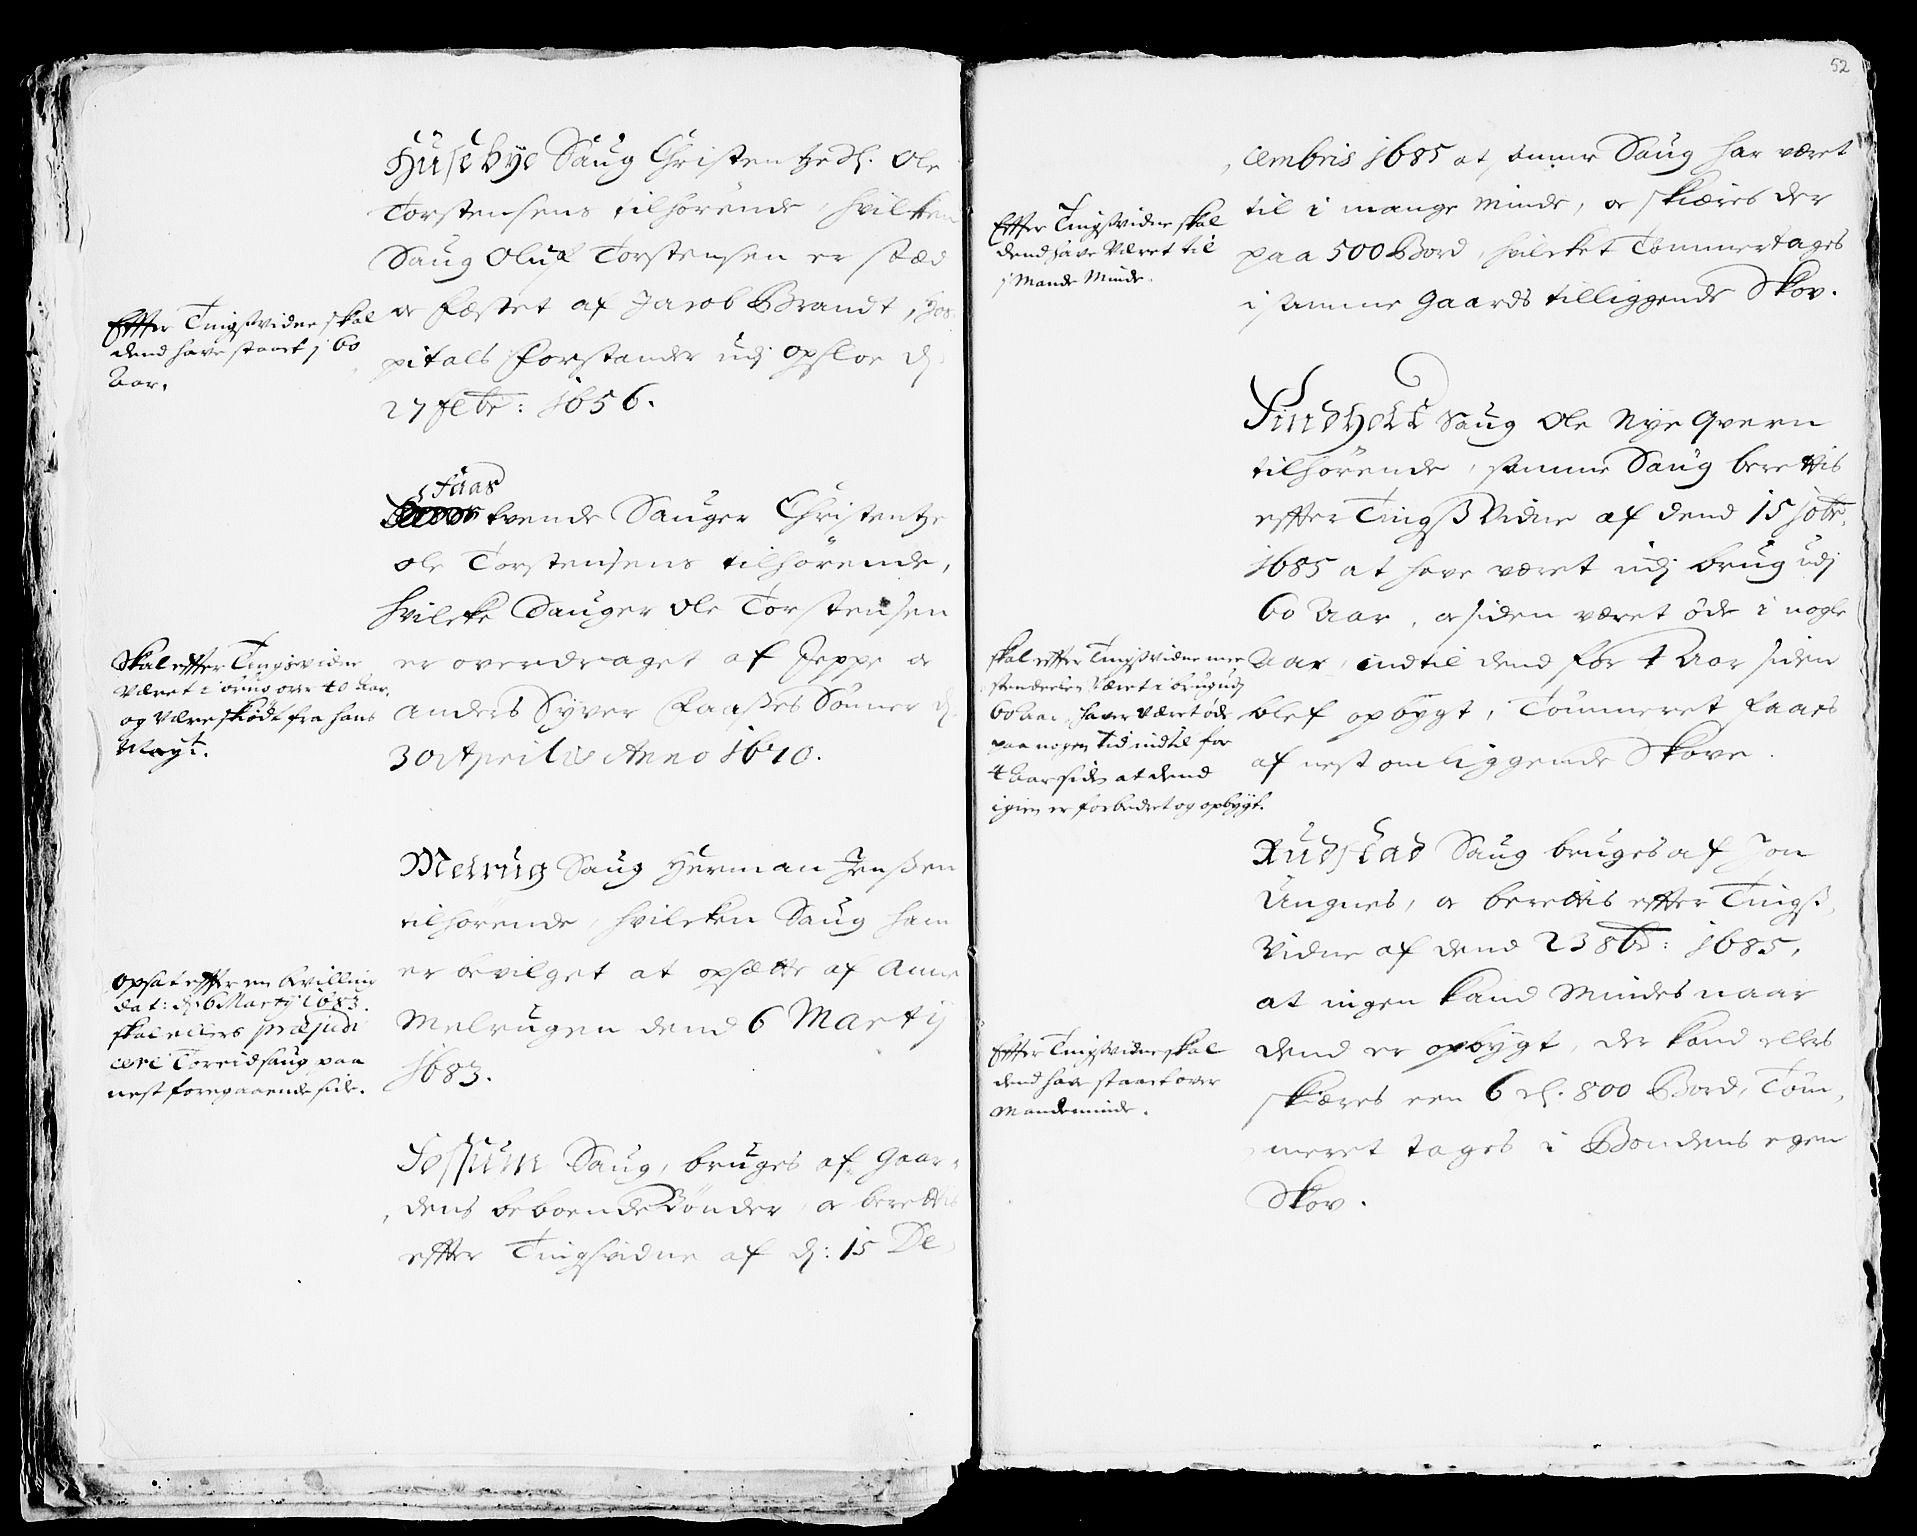 Husebye Saug Christentze Sl. Ole
Torstensens tilhörende, hvilcken
Saug Oluf Torstensen er stæd
oc fæstet af Jacob Brandt, Hos-
pitals Forstander udj Opsloe d.
27 Febr: 1656.
Effter Tingsvidne skal
dend have staaet j 60
Aar.
Faas
tvende Sauger Christentze
Ole Torstensens tilhörende,
hvilcke Sauger Ole Torstensen
er overdraget af Jeppe oc
Anders Syver Faasses Sönner d.
30 Aprilis Anno 1670.
Skal effter Tingsvidne
Været i brug over 40 Aar,
og Være skiödt fra hans
Mayt.
Melrug Saug Herman Jenssen
tilhörende, hvilcken Saug ham
er bevilget at opsætte af Anne
Melrugen dend 6 Martij
1683.
Opsat effter en bevilling
dat: d. 6 Martij 1683.
skal ellers præjudi
cere Toreid saug paa
nest foregaaende side.
Jossum Saug, bruges af Gaar-
dens beboende Bönder, oc berettis
effter Tingsvidne af d: 15 De-
52
cembris 1685 at samme Saug har været
til i mange Minde, oc skiæres der
paa 500 Bord, hvilcket Tömmer tages
i samme Gaards tilliggende Skov.
Effter Tingsvidne skal
dend have Været til
j Mande Minde.
Findholt Saug Ole Nye Qvern
tilhörende, samme Saug berettis
effter Tingss Vidne af dend 15 Xbr.
1685 at have været udj brug udj
60 Aar, oc siden været öde i nogle
Aar, indtil dend for 4 Aar siden
blef opbygt, Tömmeret faaes
af nest omliggende Skove.
skal effter Tingsvidne mee-
stendeelen Været i brug udj
60 Aar, haver Været öde
paa nogen tid indtil for
4 Aar siden at dend
igien er forbedret og opbygt.
Rudstad Saug bruges af Jon
Ungnes, oc berettis effter Tingss
Vidne af dend 23 8br: 1685,
at ingen kand Mindes naar
dend er opbygt, der kand ellers
skiæres een 6 Sl. 800 Bord, Töm-
meret tages i Bondens egen
Skov.
Effter Tingsvidne skal
dend have staaet over
Mandeminde.